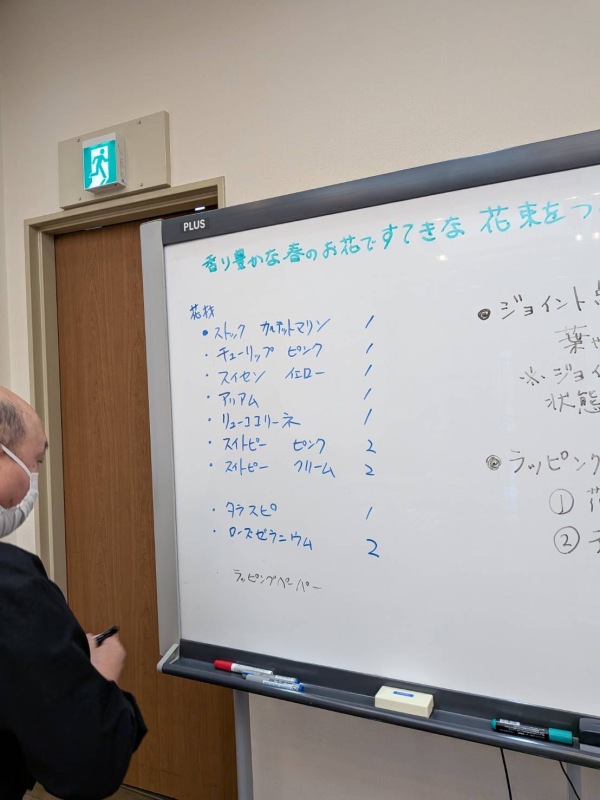 PLUS
香り豊かな春のお花ですてきな 花束をつ
花材
・ストック カルテットマリン 1
・チューリップ ピンク 1
・スイセン イエロー 1
・アリアム 1
・リューココリーネ 1
・スイトピー ピンク 2
・スイトピー クリーム 2
・タラスピ 1
・ローズゼラニウム 2
ラッピングペーパー
◎ジョイント
葉や
※ジョイ
状態
◎ラッピング
① 花
②